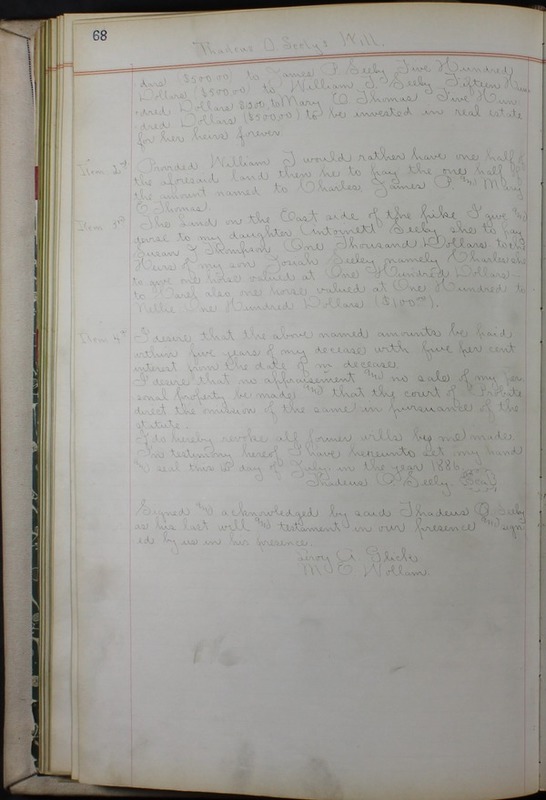 68
Thadeus A. Seelys Will.
dars ($500.00) to James P. Seeley Five Hundred
Dollars ($500.00) to William J. Seeley Fifteen Hun
dred Dollars to Mary E Thomas Five Hun
dred Dollars ($500.00) to be invested in real estate
for her heirs forever.
Item 2nd Provided William J would rather have one half of
the aforesaid land then he to pay the one half of
the amount named to Charles, James P. & Mary
E Thomas
Item 3rd The land on the East side of the pike I give &
to my daughter Seeley she to pay
Susan J Thompson One Thousand Dollars to the
Heirs of my son Josiah Seeley namely Charles she
to give one horse valued at One Hundred Dollars
to also one horse valued at One Hundred to
Nellie One Hundred Dollars ($100.00).
Item 4th I desire that the above named amounts be paid
within five years of my decease with five per cent
interest from the date of m decease.
I desire that no appraisement & no sale of my per
sonal property be made & that the court of Probate
direct the omission of the same in pursuance of the
statute.
I do hereby revoke all former wills by me made.
In testimony hereof I have hereunto set my hand
& seal this day of July in the year 1886
Thadeus A. Seely. Seal
Signed & acknowledged by said Thadeus A. Seeley
as his last will & testament in our presence & sign-
ed by us in his presence.
Leroy A.
M. E. Wollam